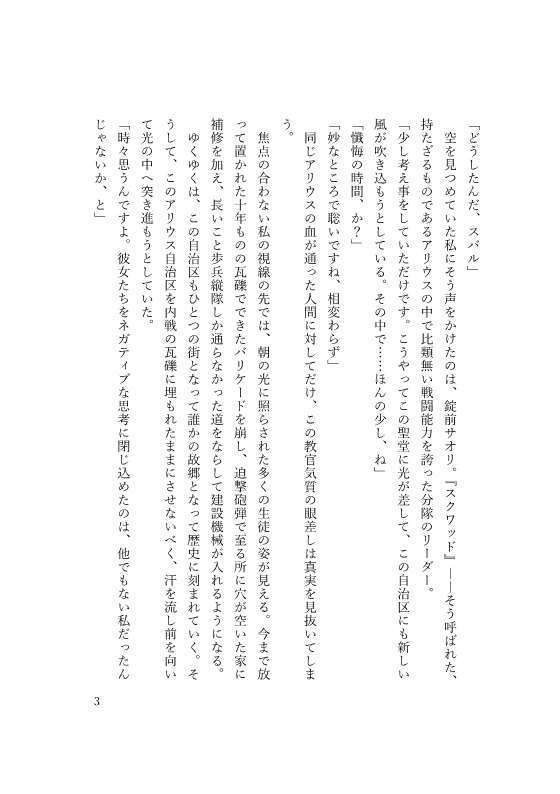 「どうしたんだ、スバル」
　空を見つめていた私にそう声をかけたのは、錠前サオリ。『スクワッド』――そう呼ばれた、
持たざるものであるアリウスの中で比類無い戦闘能力を誇った分隊のリーダー。
「少し考え事をしていただけです。こうやってこの聖堂に光が差して、この自治区にも新しい
風が吹き込もうとしている。その中で……ほんの少し、ね」
「懺悔の時間、か？」
「妙なところで聡いですね、相変わらず」
　同じアリウスの血が通った人間に対してだけ、この教官気質の眼差しは真実を見抜いてしま
う。
　焦点の合わない私の視線の先では、朝の光に照らされた多くの生徒の姿が見える。今まで放
って置かれた十年ものの瓦礫でできたバリケードを崩し、迫撃砲弾で至る所に穴が空いた家に
補修を加え、長いこと歩兵縦隊しか通らなかった道をならして建設機械が入れるようになる。
　ゆくゆくは、この自治区もひとつの街となって誰かの故郷となって歴史に刻まれていく。そ
うして、このアリウス自治区を内戦の瓦礫に埋もれたままにさせないべく、汗を流し前を向い
て光の中へ突き進もうとしていた。
「時々思うんですよ。彼女たちをネガティブな思考に閉じ込めたのは、他でもない私だったん
じゃないか、と」
3